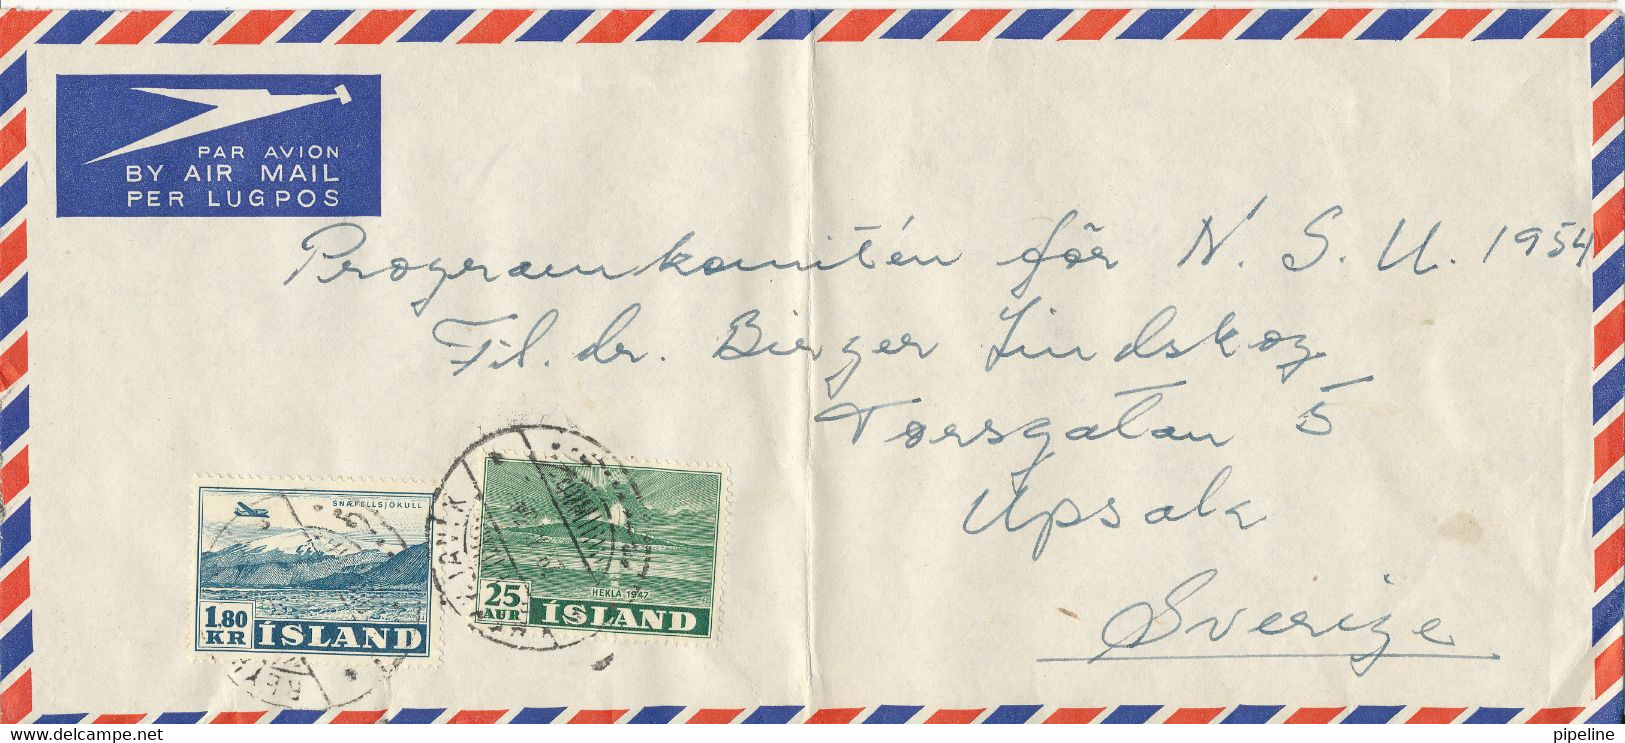 PAR AVION
BY AIR MAIL
PER LUGPOS
Programkomitén för N. S. U. 1954
Fil. dr. Birger Lindskog
Torsgatan 5
Upsala
Sverige
SNÆFELLSJÖKULL
1.80
KR ÍSLAND
HEKLA 1947
25
AUR ÍSLAND
REYKJAVIK
pipeline